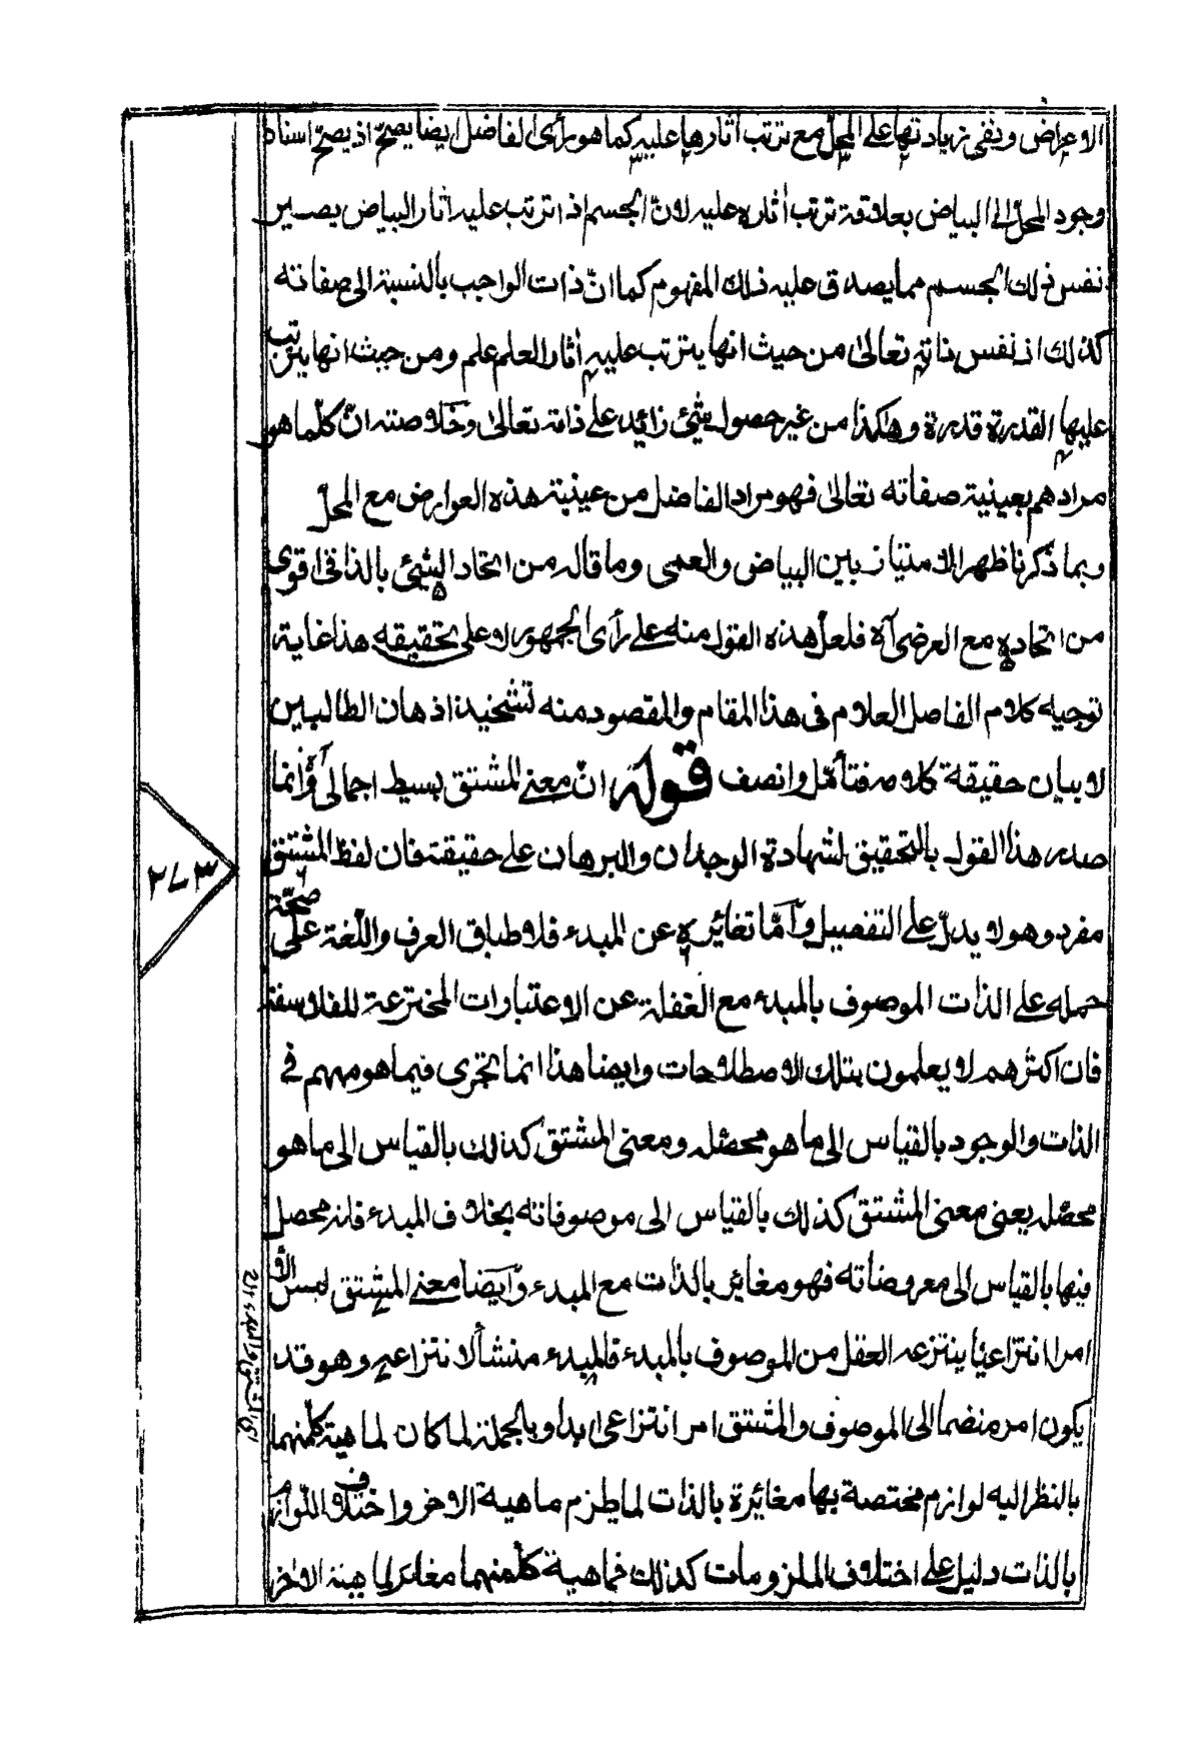 الاعراض ونفى زيادتها على المحل مع ترتب اثارها عليه كما هو رأى الفاضل ايضا يصحّ اذ يصحّ اسناد
وجود المحل الى البياض بعلاقة ترتب اثاره عليه لانّ الجسم اذا ترتب عليه اثار البياض يصير
نفس ذلك الجسم مما يصدق عليه ذلك المفهوم كما انّ ذات الواجب بالنسبة الى صفاته
كذلك اذ نفس ذاته تعالىٰ من حيث انها يترتب عليه اٰثار العلم علم ومن حيث انها يترتب
عليها القدرة قدرة وهٰكذا من غير حصول شئ زائد على ذاته تعالىٰ وخلاصته انّ كلّما هو
مرادهم بعينية صفاته تعالىٰ فهو مراد الفاضل من عينية هذه العوارض مع المحلّ
وبما ذكرنا ظهر الامتياز بين البياض والعمى وما قاله من اتحاد الشئ بالذاتى اقوى
من اتحاده مع العرضى آه فلعلّ هذه القول منه على رأى الجمهور لا على تحقيقه هذا غاية
توجيه كلام الفاضل العلام فى هذا المقام والمقصود منه تشحيذ اذهان الطالبين
لا بيان حقيقة كلامه فتأمّل وانصف قوله انّ معنى المشتق بسيط اجمالى آه وانما
صدر هذا القول بالتحقيق لشهادة الوجدان والبرهان على حقيقته فان لفظ المشتق
مفرد وهو لا يدلّ على التفصيل وامّا تغائره عن المبدء فلاطباق العرف واللّغة على صحّة
حمله على الذات الموصوف بالمبدء مع الغفلة عن الاعتبارات المخترعة للفلاسفة
فان اكثرهم لا يعلمون بتلك الاصطلاحات وايضا هذا انما تجرى فيما هو مبهم فى
الذات والوجود بالقياس الى ما هو محصّله ومعنى المشتق كذلك بالقياس الى ما هو
محصّله يعنى معنى المشتق كذلك بالقياس الى موصوفاته بخلاف المبدء فانه محصل
فيها بالقياس الى معروضاته فهو مغائر بالذات مع المبدء وايضا معنى المشتق ليس الا
امرا انتزاعيّا ينتزعه العقل من الموصوف بالمبدء فالمبدء منشأ لانتزاعه وهو قد
يكون امر منضما الى الموصوف والمشتق امر انتزاعى ابدا وبالجملة لما كان لماهية كلّ منهما
بالنظر اليه لوازم مختصة بها مغائرة بالذات لما يلزم ماهية الاخر واختلاف اللوازم
بالذات دليل على اختلاف الملزومات كذلك فماهية كلّ منهما مغائر لماهية الاخر
٢٧٣
اى المشتق والمبدء ١٢